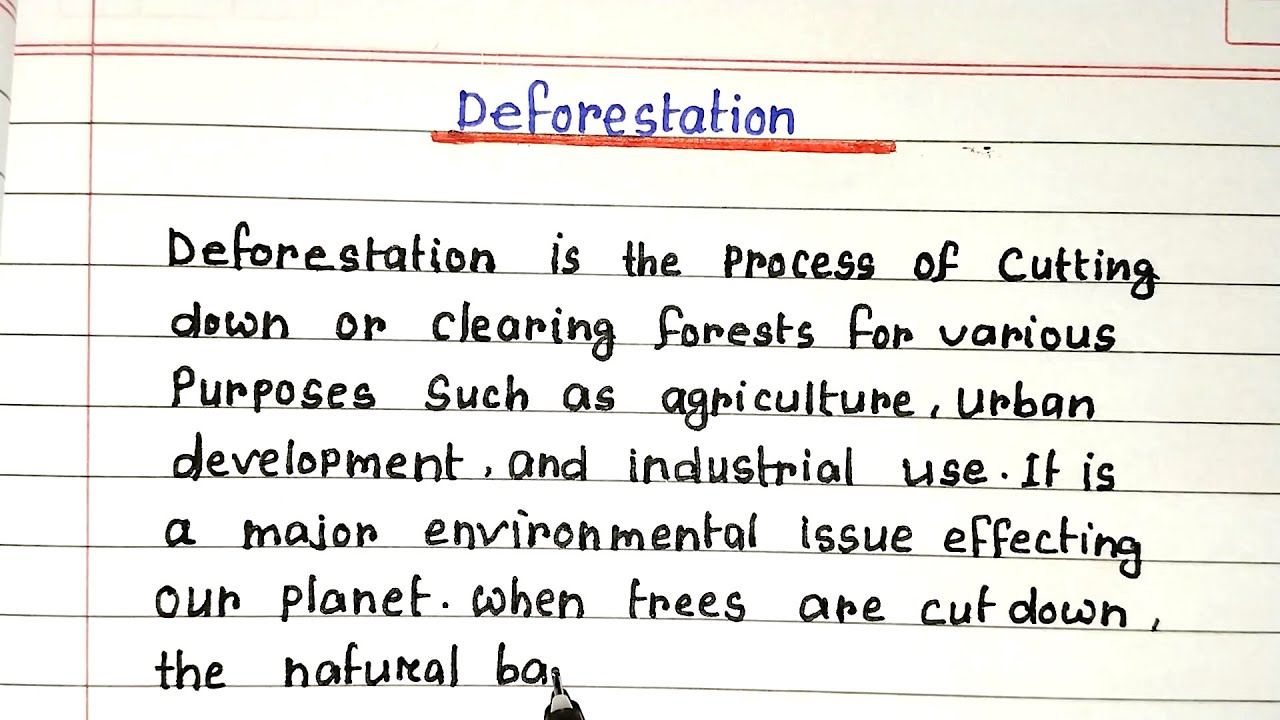 Deforestation
Deforestation is the process of Cutting
down or clearing forests for various
Purposes Such as agriculture, urban
development, and industrial use. It is
a major environmental issue effecting
our planet. when trees are cut down,
the natural ba